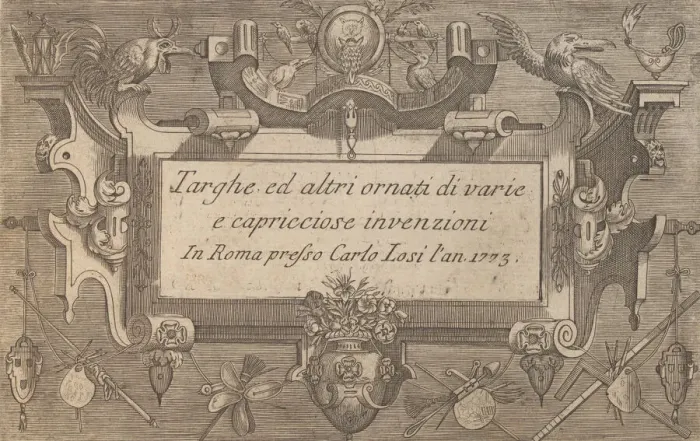 Targhe ed altri ornati di varie
e capricciose invenzioni
In Roma presso Carlo Losi l'an. 1773.